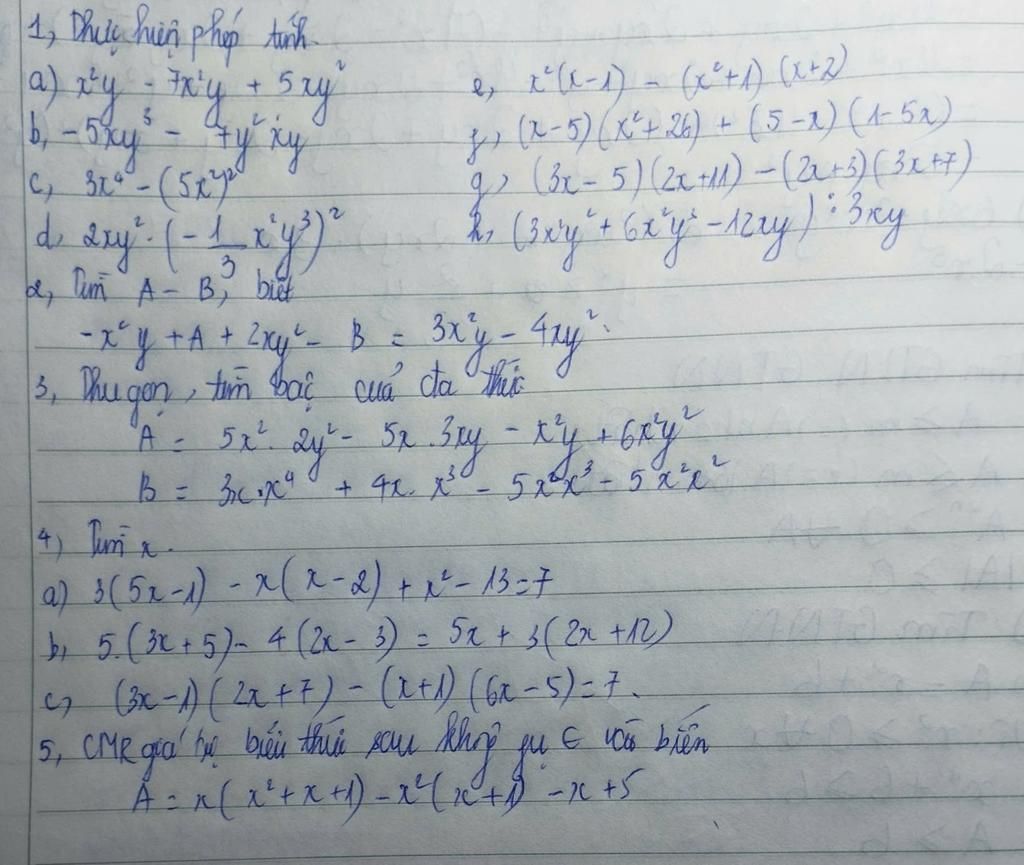 1, Thực hiện phép tính.
a) x²y - 7x²y + 5xy²
b, -5xy³ - 7y²xy
c, 3x⁴ - (5x²)²
d, 2xy² · (-1/3 x²y³)²
e, x²(x-1) - (x²+1)(x+2)
f, (x-5)(x²+26) + (5-x)(1-5x)
g, (3x-5)(2x+11) - (2x+3)(3x+7)
h, (3x²y² + 6x²y³ - 12xy) : 3xy
2, Tìm A - B, biết
-x²y + A + 2xy² - B = 3x²y - 4xy².
3, Thu gọn, tìm bậc của đa thức
A = 5x² · 2y² - 5x · 3xy - x²y + 6x²y²
B = 3x·x⁴ + 4x · x³ - 5x²x³ - 5x²x²
4) Tìm x.
a) 3(5x-1) - x(x-2) + x² - 13 = 7
b, 5.(3x+5) - 4(2x-3) = 5x + 3(2x+12)
c, (3x-1)(2x+7) - (x+1)(6x-5) = 7.
5, CMR giá trị biểu thức sau không ∈ vào biến
A = x(x²+x+1) - x²(x+1) - x + 5